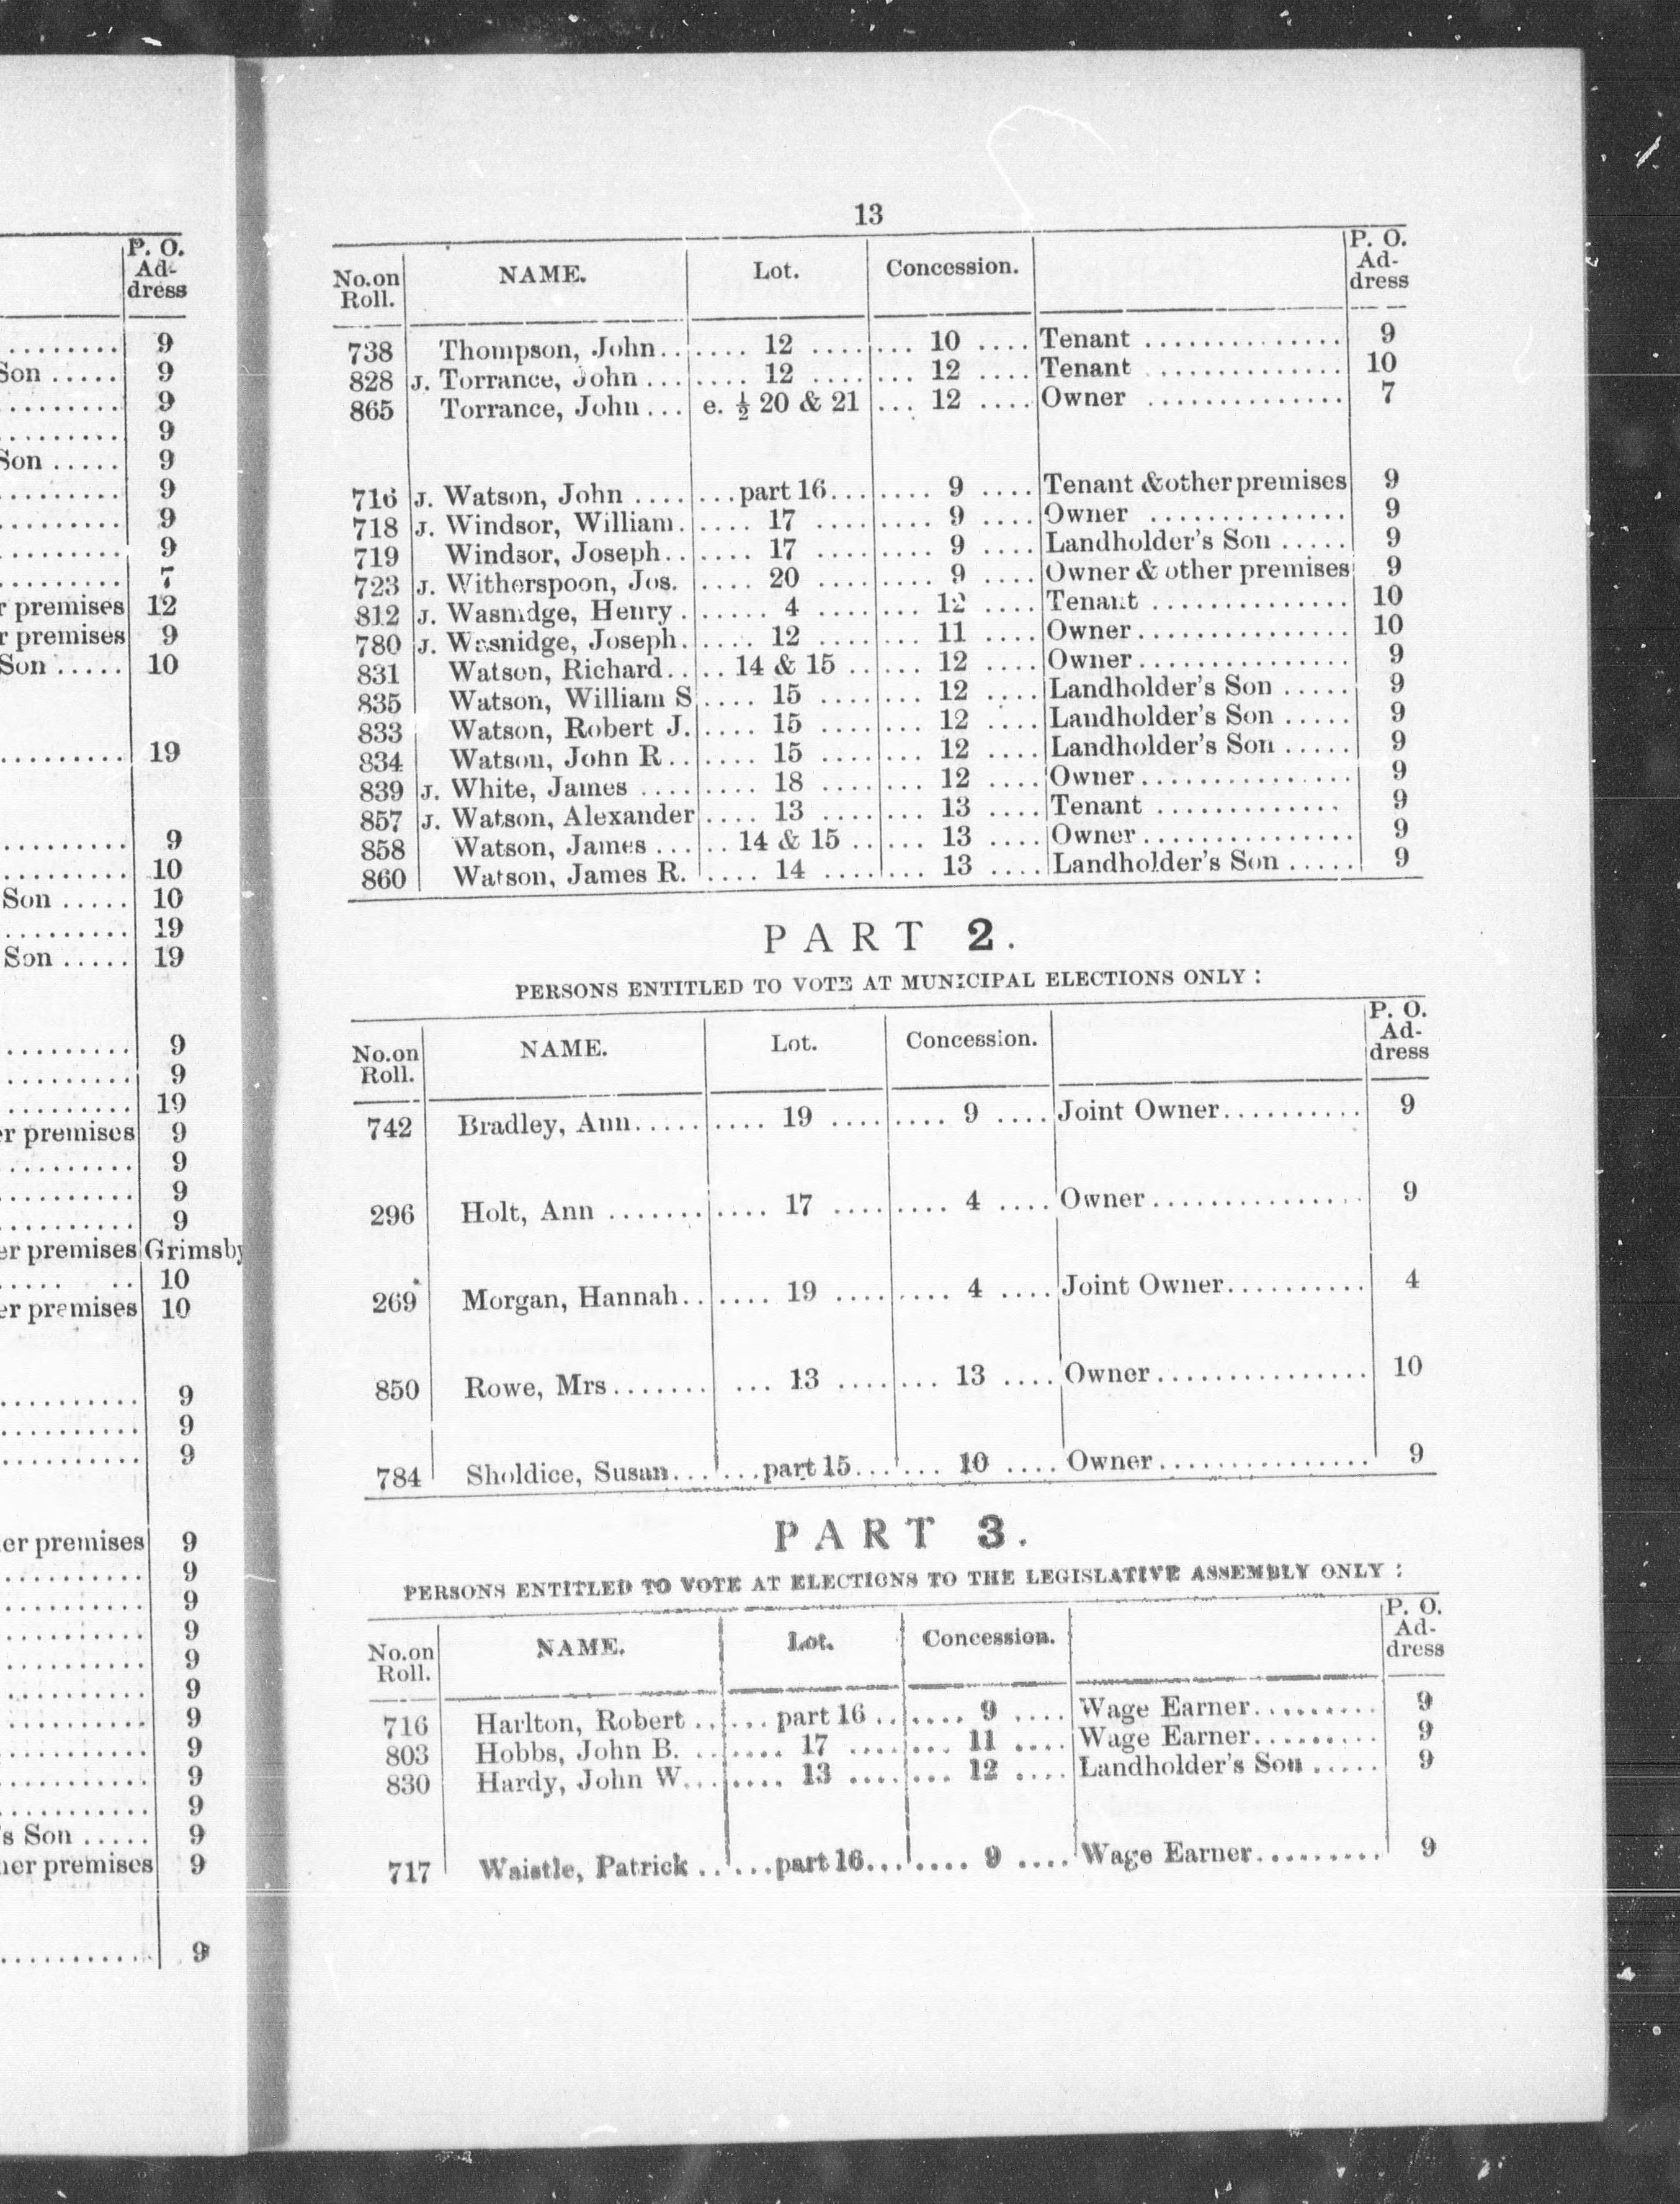 P. O.
Ad-
dress
......... 9
Son ..... 9
......... 9
......... 9
Son ..... 9
......... 9
......... 9
......... 9
......... 7
r premises 12
r premises 9
Son ..... 10
......... 19
......... 9
......... 10
Son ..... 10
......... 19
Son ..... 19
......... 9
......... 9
......... 19
er premises 9
......... 9
......... 9
......... 9
er premises Grimsby
..... .. 10
er premises 10
......... 9
......... 9
......... 9
er premises 9
......... 9
......... 9
......... 9
......... 9
......... 9
......... 9
......... 9
......... 9
......... 9
's Son ..... 9
her premises 9
......... 9
13
No.on Roll. NAME. Lot. Concession. P. O. Ad- dress
738 Thompson, John.. .... 12 .... ... 10 .... Tenant .............. 9
828 J. Torrance, John ... .... 12 .... ... 12 .... Tenant .............. 10
865 Torrance, John ... e. ½ 20 & 21 ... 12 .... Owner .............. 7
716 J. Watson, John .... ...part 16... .... 9 .... Tenant & other premises 9
718 J. Windsor, William. .... 17 .... .... 9 .... Owner .............. 9
719 Windsor, Joseph.. .... 17 .... .... 9 .... Landholder's Son ..... 9
723 J. Witherspoon, Jos. .... 20 .... .... 9 .... Owner & other premises 9
812 J. Wasnidge, Henry . ..... 4 .... ... 12 .... Tenant .............. 10
780 J. Wasnidge, Joseph. .... 12 .... ... 11 .... Owner............... 10
831 Watson, Richard.. .. 14 & 15 .. ... 12 .... Owner............... 9
835 Watson, William S .... 15 .... ... 12 .... Landholder's Son ..... 9
833 Watson, Robert J. .... 15 .... ... 12 .... Landholder's Son ..... 9
834 Watson, John R.. .... 15 .... ... 12 .... Landholder's Son ..... 9
839 J. White, James .... .... 18 .... ... 12 .... Owner............... 9
857 J. Watson, Alexander .... 13 .... ... 13 .... Tenant ............. 9
858 Watson, James ... .. 14 & 15 .. ... 13 .... Owner............... 9
860 Watson, James R. .... 14 .... ... 13 .... Landholder's Son ..... 9
PART 2.
PERSONS ENTITLED TO VOTE AT MUNICIPAL ELECTIONS ONLY :
No.on Roll. NAME. Lot. Concession. P. O. Ad- dress
742 Bradley, Ann..... .... 19 .... .... 9 .... Joint Owner.......... 9
296 Holt, Ann ....... .... 17 .... .... 4 .... Owner............... 9
269 Morgan, Hannah.. .... 19 .... .... 4 .... Joint Owner.......... 4
850 Rowe, Mrs....... ... 13 .... ... 13 .... Owner............... 10
784 Sholdice, Susan... ...part 15... ... 10 .... Owner............... 9
PART 3.
PERSONS ENTITLED TO VOTE AT ELECTIONS TO THE LEGISLATIVE ASSEMBLY ONLY :
No.on Roll. NAME. Lot. Concession. P. O. Ad- dress
716 Harlton, Robert .. ... part 16 .. .... 9 .... Wage Earner......... 9
803 Hobbs, John B. .. .... 17 .... ... 11 .... Wage Earner......... 9
830 Hardy, John W... .... 13 .... ... 12 .... Landholder's Son ..... 9
717 Waistle, Patrick .. ...part 16... .... 9 .... Wage Earner......... 9